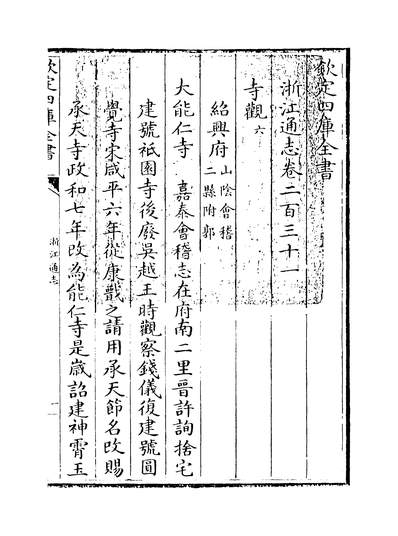 欽定四庫全書
浙江通志卷二百三十一
寺觀六
紹興府 山陰會稽
二縣附郭
大能仁寺 嘉泰會稽志在府南二里晉許詢捨宅
建號祇園寺後廢吳越王時觀察錢儀復建號圓
覺寺宋咸平六年從康戩之請用承天節名改賜
承天寺政和七年改為能仁寺是歲詔建神霄玉
欽定四庫全書
浙江通志
一